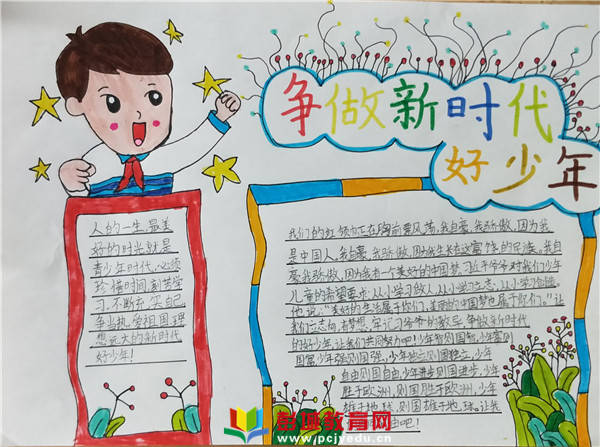 争做新时代
好少年
人的一生最美
好的时光就是
青少年时代,必须
珍惜时间,刻苦学
习,不断充实自己,
争当热爱祖国、理
想远大的新时代
好少年!
我们的红领巾正在胸前迎风飘,我自豪,我骄傲,因为我
是中国人,我自豪,我骄傲,因为我生长在这富饶的民族。我自
豪我骄傲,因为我有一个美好的中国梦,习近平爷爷对我们少年
儿童的希望要求:从小学习做人,从小学习立志,从小学习创造。
他说:“美好的生活属于你们,美丽的中国梦也属于你们。”让
我们立志向,有梦想,牢记习爷爷的教导,争做新时代
的好少年,让我们共同努力吧!少年智则国智,少年富则
国富,少年强则国强,少年独立则国独立,少年
自由则国自由,少年进步则国进步,少年
胜于欧洲,则国胜于欧洲,少年
雄于地球,则国雄于地球,让我
吧!
彭城教育网
www.pcjyedu.cn